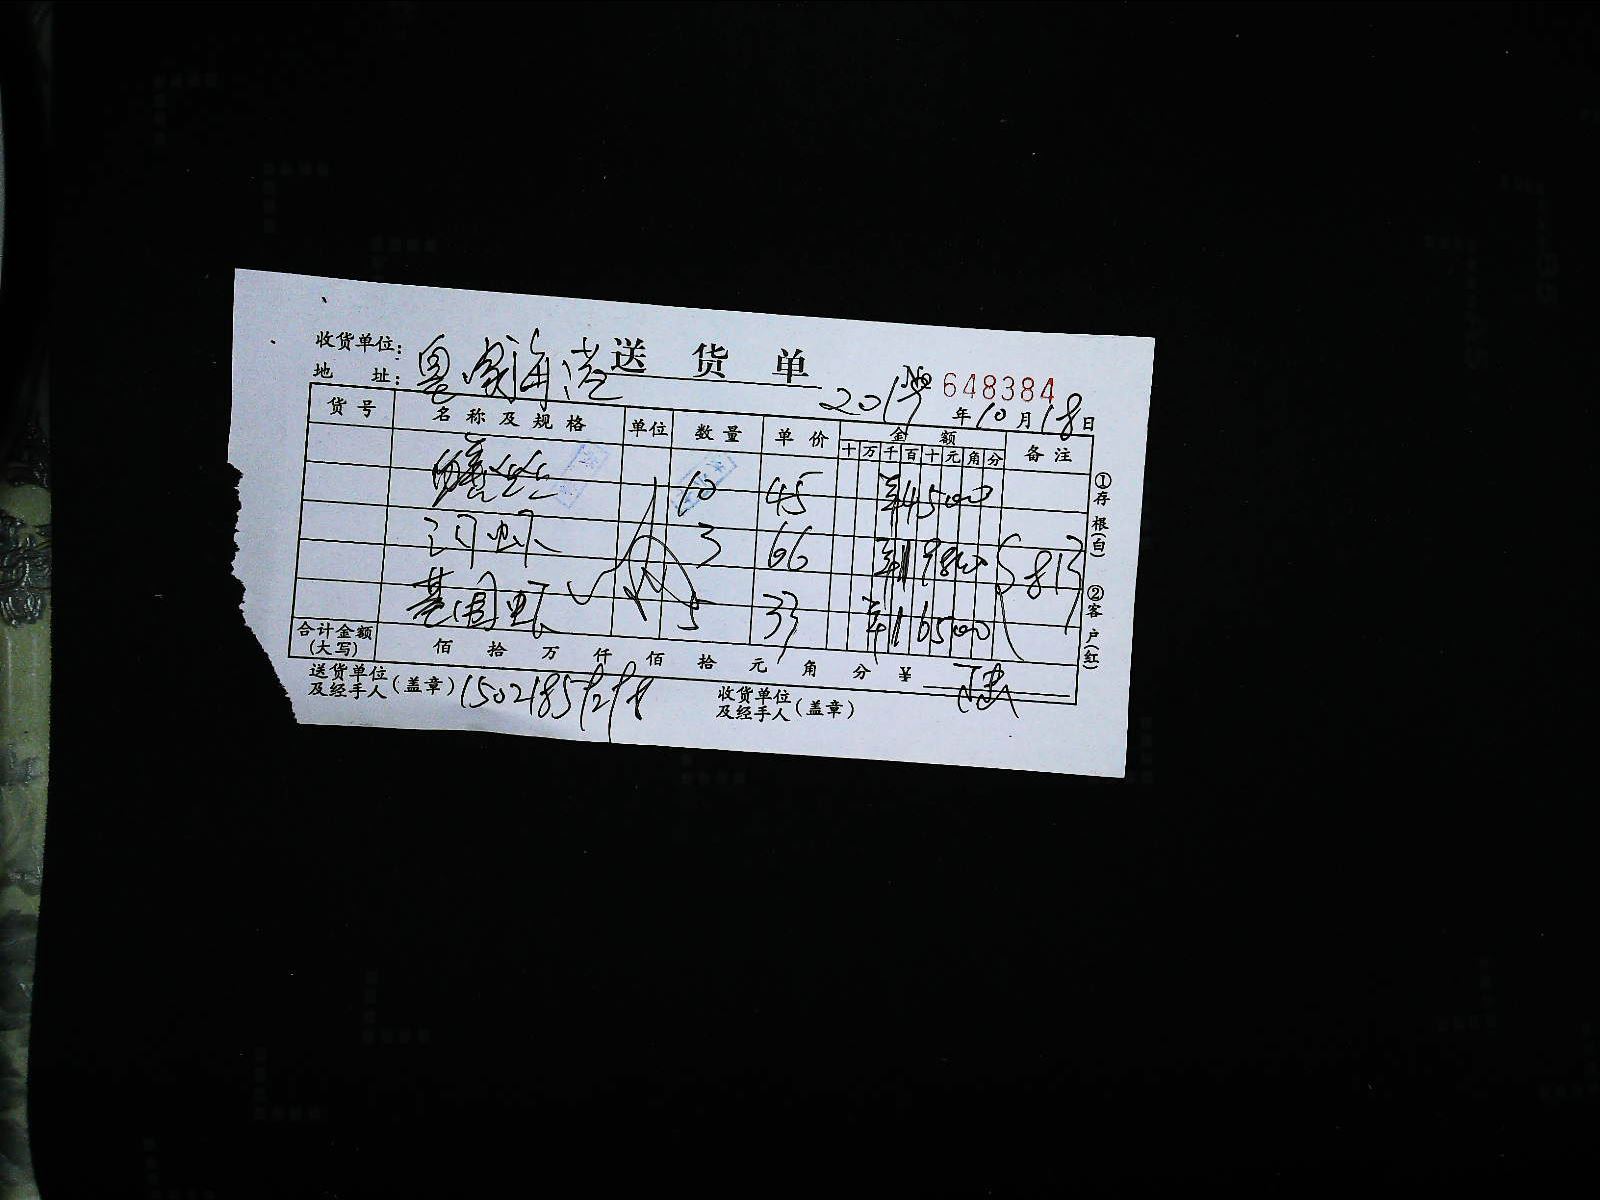 收货单位：
送货单
地 址：
№ 648384
2019年10月18日
货号 名称及规格 单位 数量 单价 金额 备注
十 万 千 百 十 元 角 分
10 45 ¥45000
河虾 3 66 ¥19800 S 813
基围虾 5 33 ¥16500
合计金额(大写) 佰 拾 万 仟 佰 拾 元 角 分 ¥
送货单位及经手人(盖章)
收货单位及经手人(盖章)
①存根(白) ②客户(红)